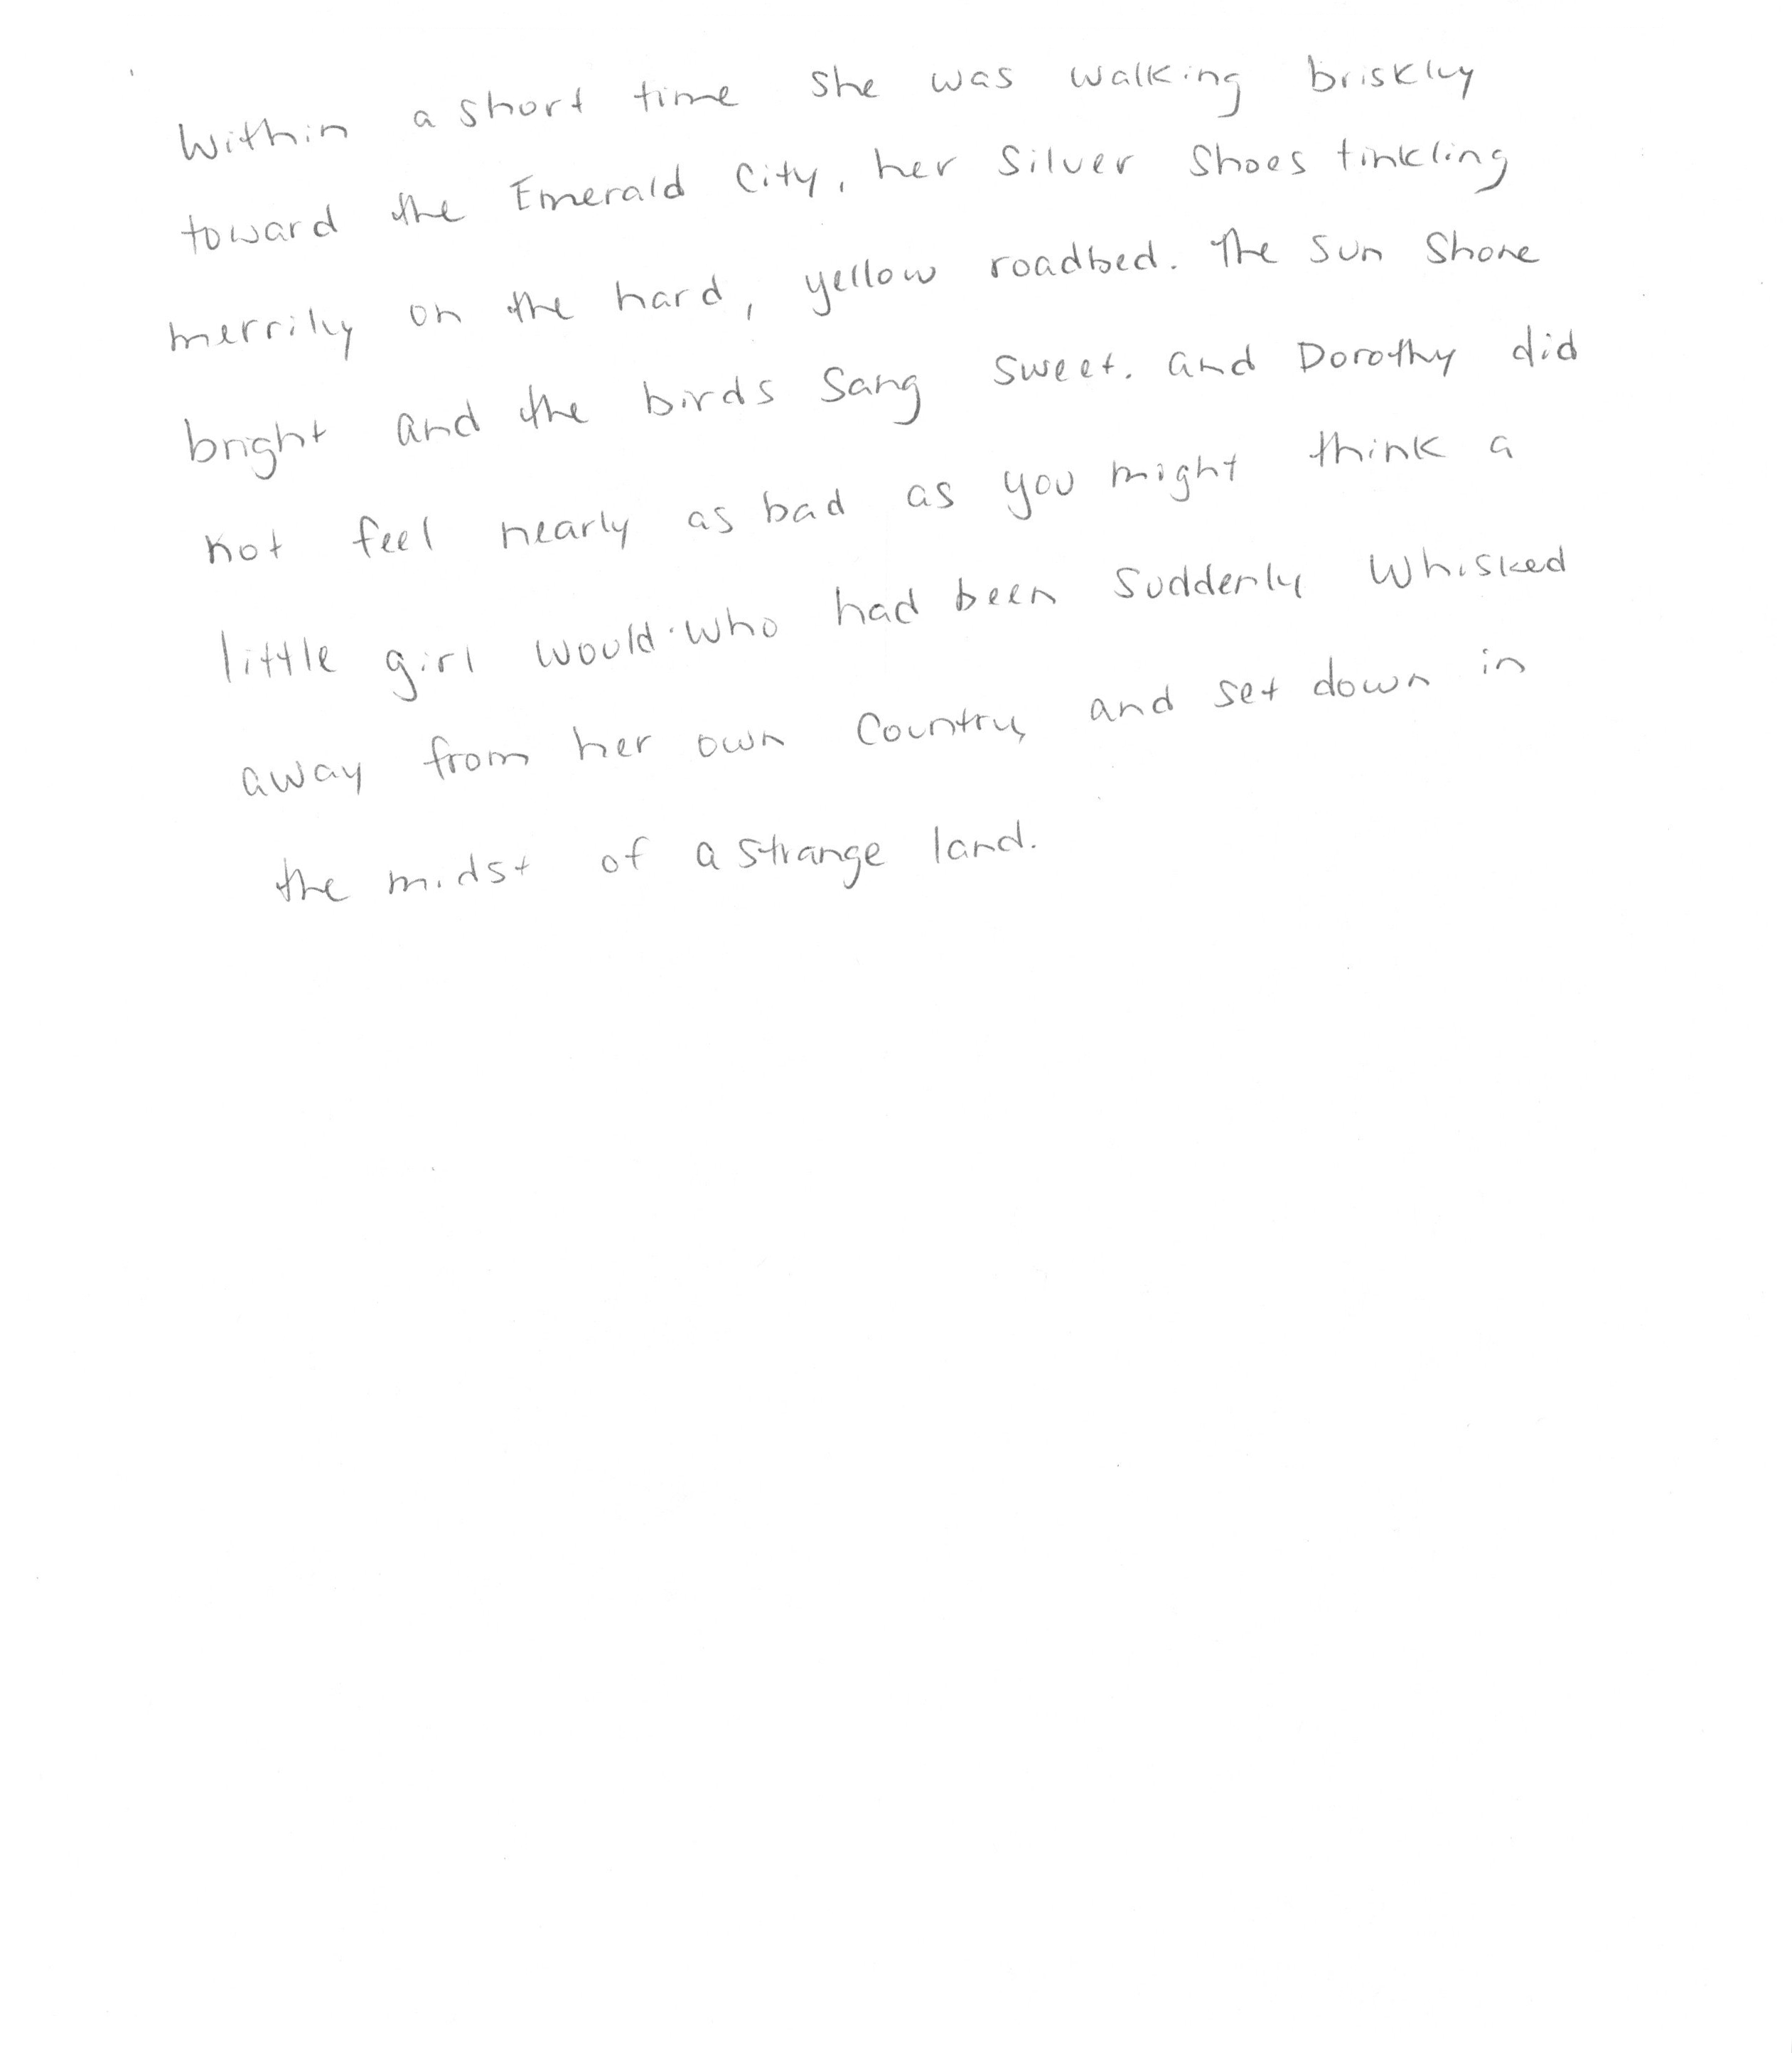 Within a short time she was walking briskly
toward the Emerald City, her Silver Shoes tinkling
merrily on the hard, yellow roadbed. The sun shone
bright and the birds sang sweet. and Dorothy did
not feel nearly as bad as you might think a
little girl would who had been suddenly whisked
away from her own country and set down in
the midst of a strange land.